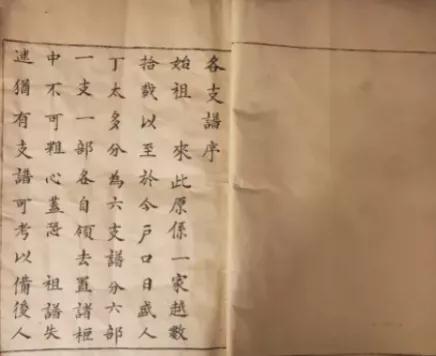 各支譜序
始祖 來此原係一家越數
拾載以至於今戸口日盛人
丁太多分為六支譜分六部
一支一部各自領去置諸櫃
中不可粗心蓋恐 祖譜失
迷猶有支譜可考以備後人